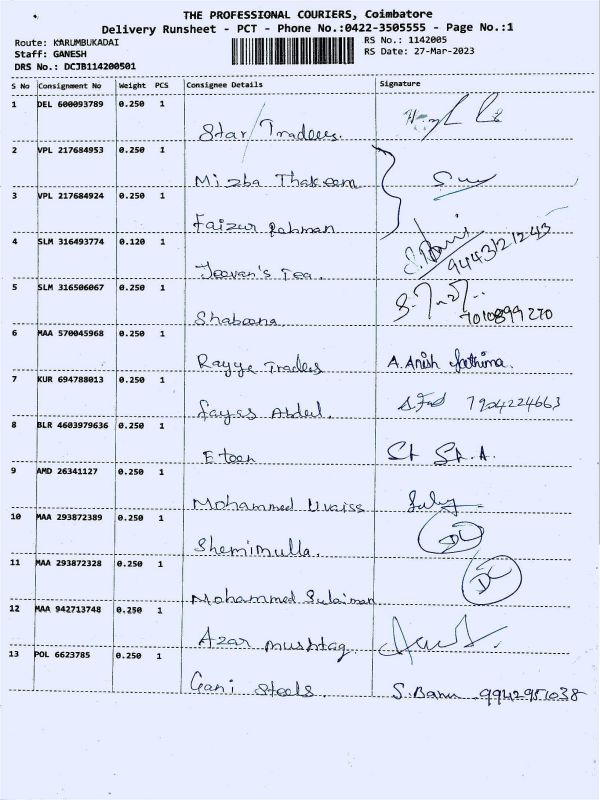 THE PROFESSIONAL COURIERS, Coimbatore
Delivery Runsheet - PCT - Phone No.:0422-3505555 - Page No.:1
Route: KARUMBUKADAI
RS No.: 1142005
Staff: GANESH
RS Date: 27-Mar-2023
DRS No.: DCJB114200501
S No Consignment No Weight PCS Consignee Details Signature
1 DEL 600093789 0.250 1
Star Traders.
2 VPL 217684953 0.250 1
Mizba Thakeem
3 VPL 217684924 0.250 1
Faizur Rahman
4 SLM 316493774 0.120 1
9443121243
Jeevan's Tea.
5 SLM 316506067 0.250 1
Shabeena 7010899270
6 MAA 570045968 0.250 1
Rayye Traders A.Anish fathima.
7 KUR 694788013 0.250 1
Fayas Abdul. 7904224663
8 BLR 4603979636 0.250 1
E teen
9 AMD 26341127 0.250 1
Mohammed Uvaiss
10 MAA 293872389 0.250 1
Shemimulla. DC
11 MAA 293872328 0.250 1
Mohammed Sulaiman DC
12 MAA 942713748 0.250 1
Azar Mushtaq
13 POL 6623785 0.250 1
Gani Steels. S.Banu 9942951038